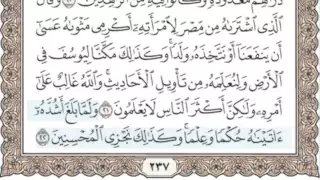 دَرَٰهِمَ مَعْدُودَةٍ وَكَانُوا۟ فِيهِ مِنَ ٱلزَّٰهِدِينَ ۝٢٠ وَقَالَ
ٱلَّذِى ٱشْتَرَىٰهُ مِن مِّصْرَ لِٱمْرَأَتِهِۦٓ أَكْرِمِى مَثْوَىٰهُ عَسَىٰٓ
أَن يَنفَعَنَآ أَوْ نَتَّخِذَهُۥ وَلَدًا ۚ وَكَذَٰلِكَ مَكَّنَّا لِيُوسُفَ فِى
ٱلْأَرْضِ وَلِنُعَلِّمَهُۥ مِن تَأْوِيلِ ٱلْأَحَادِيثِ ۚ وَٱللَّهُ غَالِبٌ عَلَىٰٓ
أَمْرِهِۦ وَلَٰكِنَّ أَكْثَرَ ٱلنَّاسِ لَا يَعْلَمُونَ ۝٢١ وَلَمَّا بَلَغَ أَشُدَّهُۥٓ
ءَاتَيْنَٰهُ حُكْمًا وَعِلْمًا ۚ وَكَذَٰلِكَ نَجْزِى ٱلْمُحْسِنِينَ ۝٢٢
٢٣٧